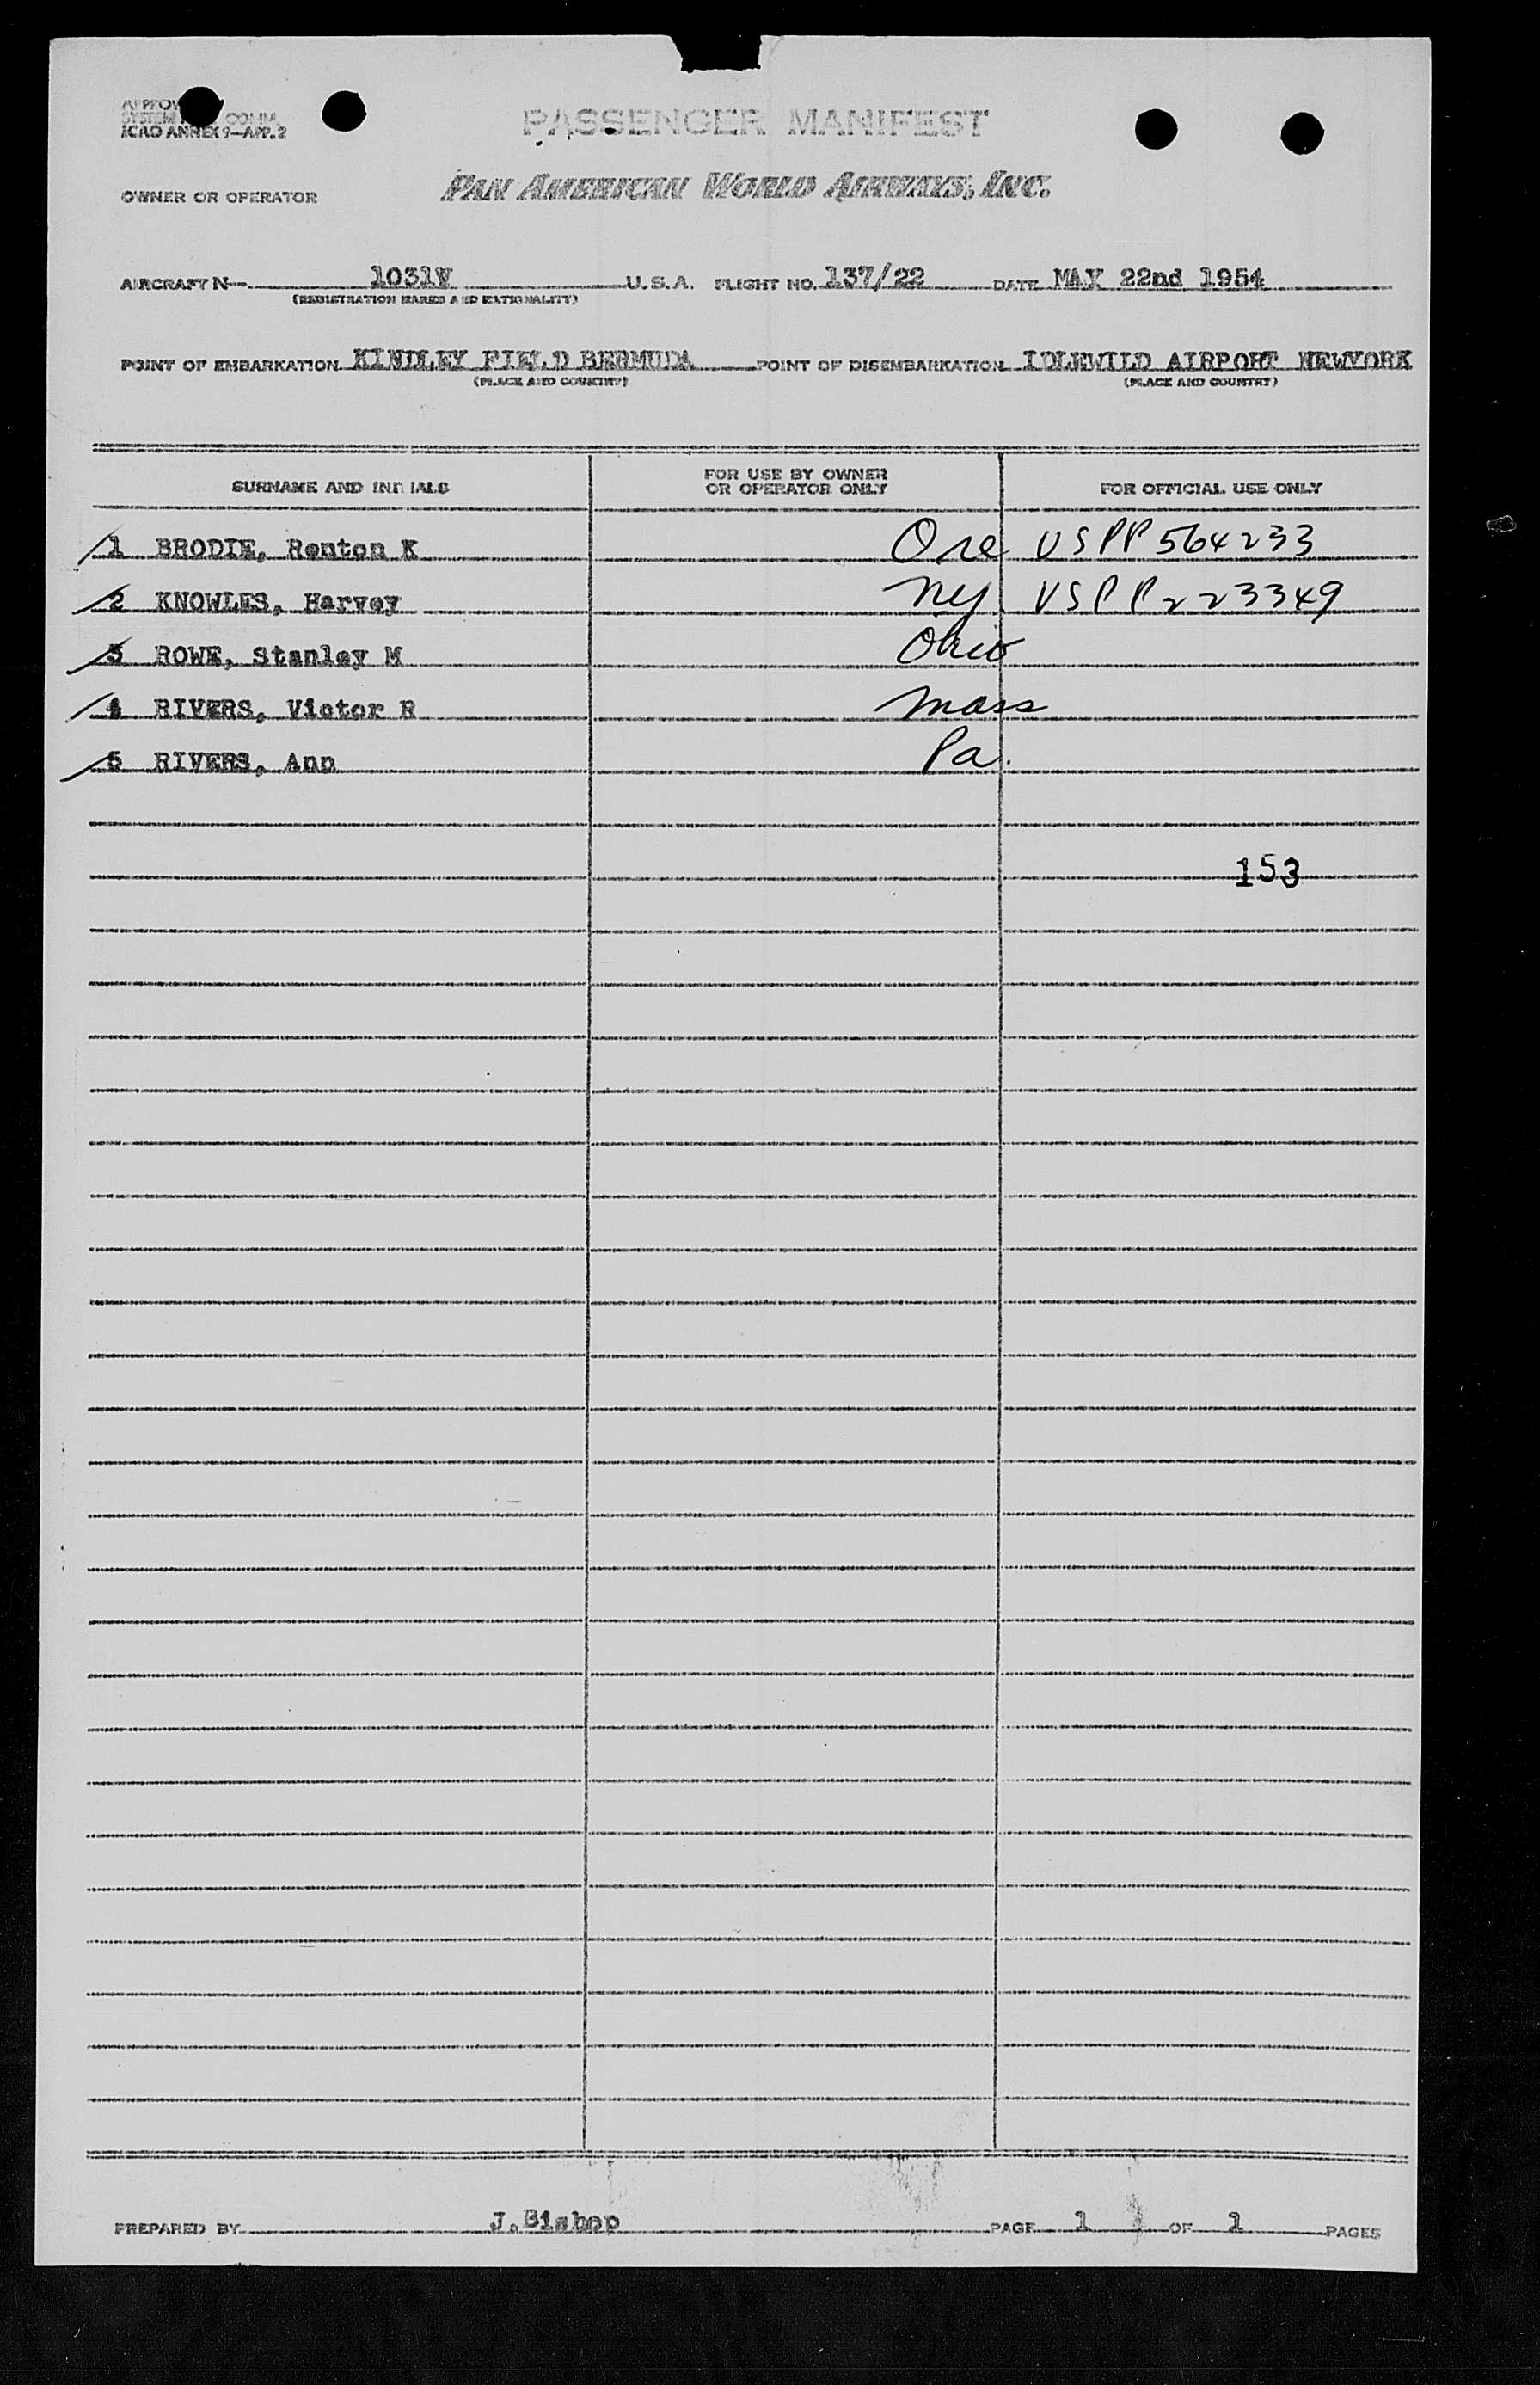 APPROV
SYSTEM COMM.
ICAO ANNEX 9—APP. 2
PASSENGER MANIFEST
OWNER OR OPERATOR PAN AMERICAN WORLD AIRWAYS, INC.
AIRCRAFT N— 1031V U.S.A. FLIGHT NO. 137/22 DATE MAY 22nd 1954
(REGISTRATION MARKS AND NATIONALITY)
POINT OF EMBARKATION KINDLEY FIELD BERMUDA POINT OF DISEMBARKATION IDLEWILD AIRPORT NEWYORK
(PLACE AND COUNTRY) (PLACE AND COUNTRY)
SURNAME AND INITIALS FOR USE BY OWNER OR OPERATOR ONLY FOR OFFICIAL USE ONLY
1 BRODIE, Renton K Ore USPP 564233
2 KNOWLES, Harvey NY USPP 223349
3 ROWE, Stanley M Ohio
4 RIVERS, Victor R Mass
5 RIVERS, Ann Pa.
153
PREPARED BY J.Bishop PAGE 1 OF 1 PAGES